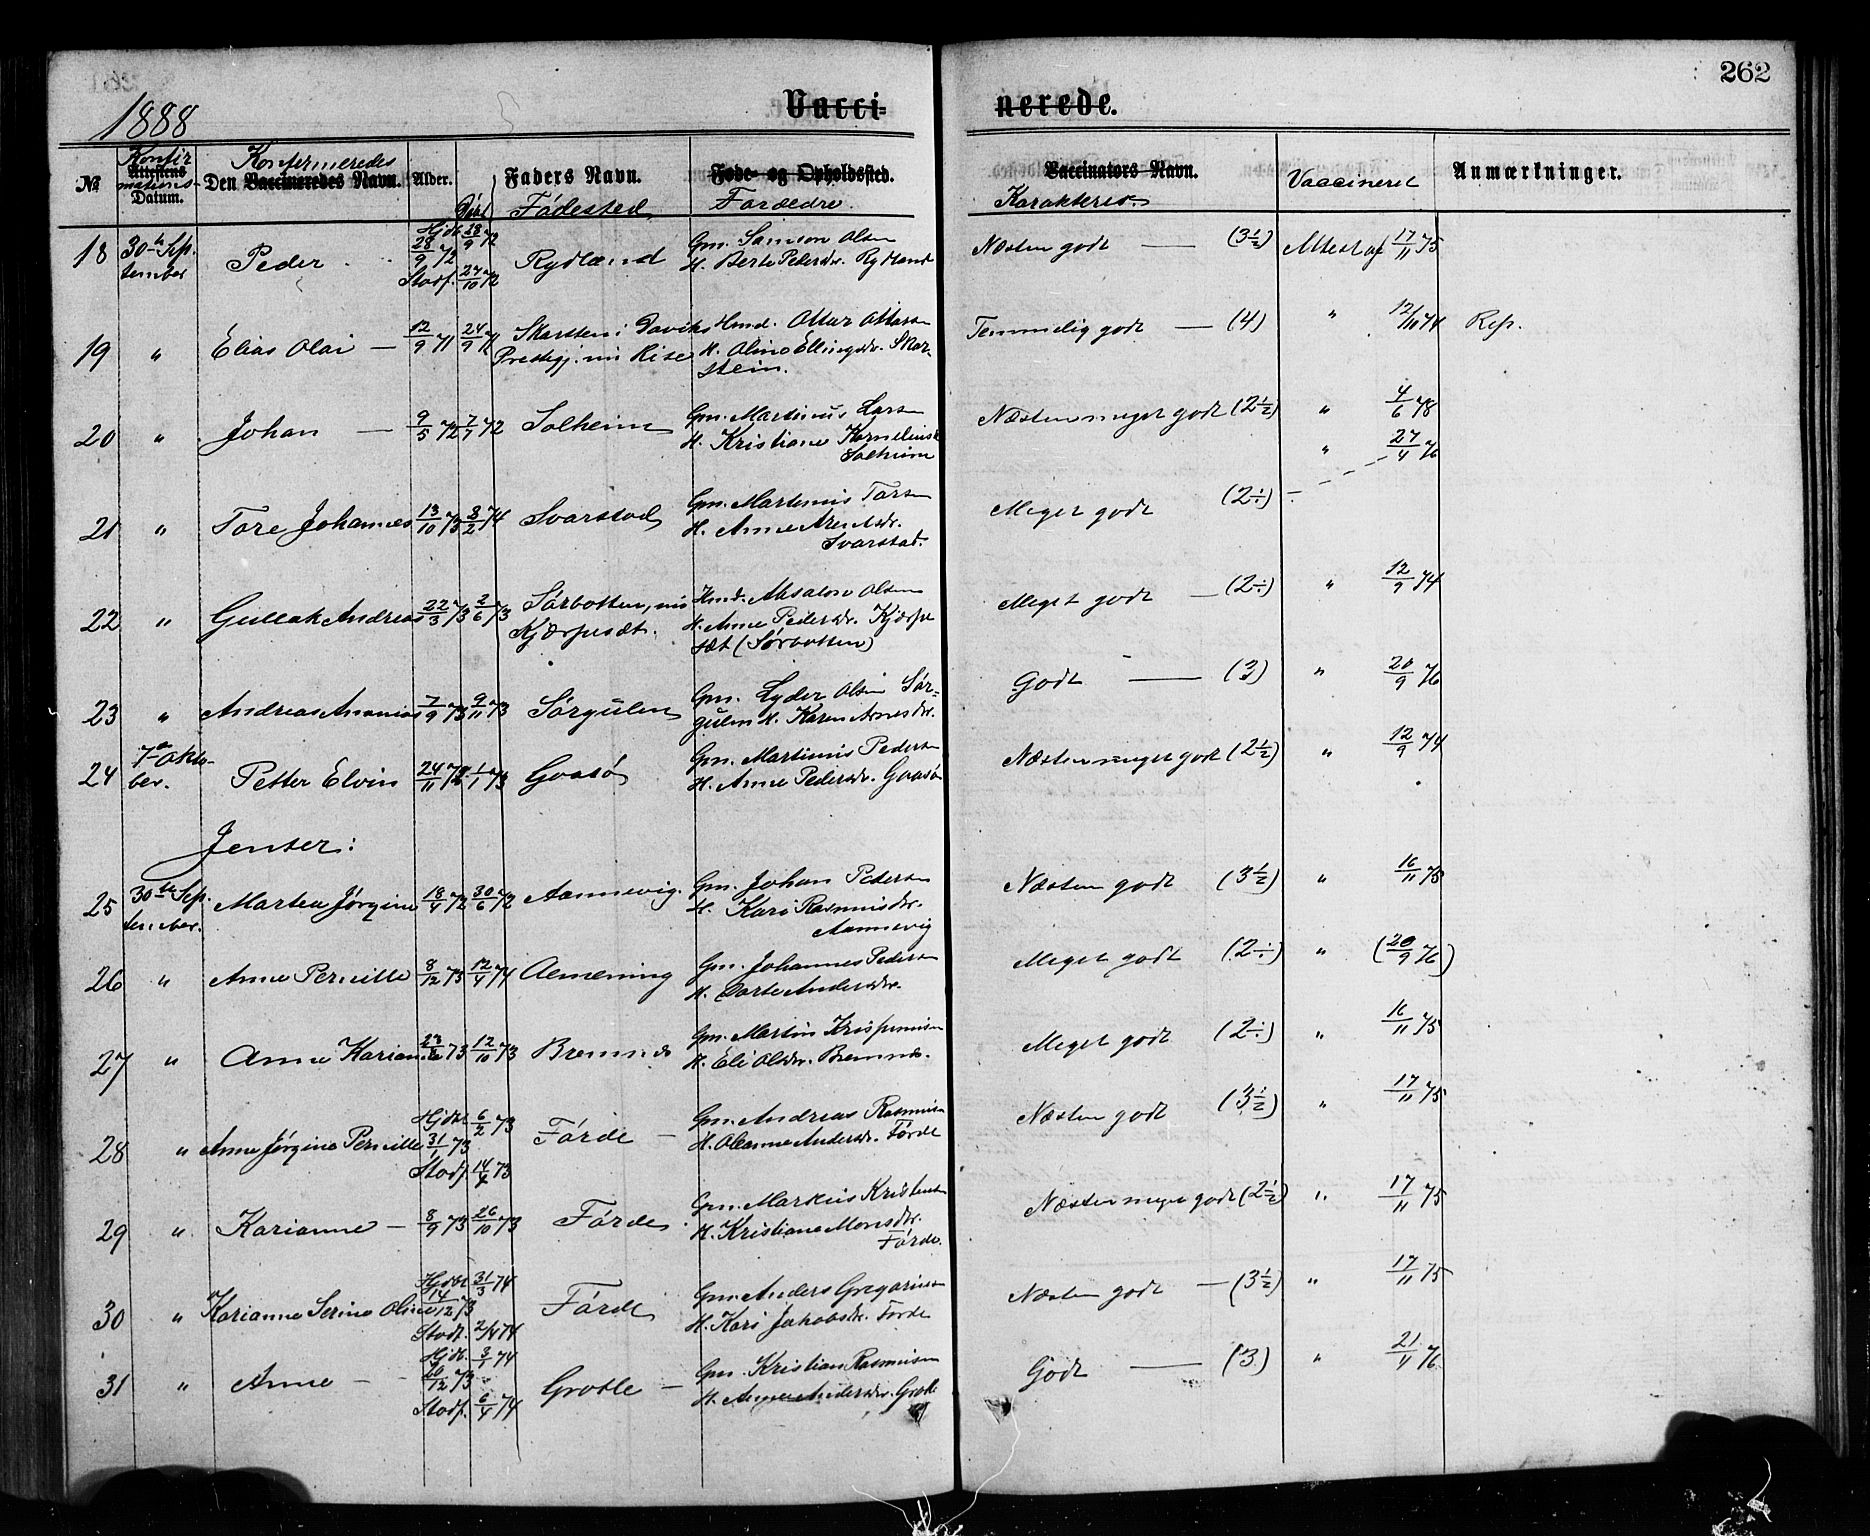 262
1888
Vacci-
nerede.
No
Konfir
Attestens
mations-
Datum.
Konfirmeredes
Den Vaccineredes Navn.
Alder.
Døbt
Faders Navn.
Fødested
Føde- og Opholdssted.
Forældre.
Vaccinators Navn.
Karakteres.
Vaccineret
Anmærkninger.
18 30te Sep-
tember
Peder
Hjdt. 28/9 72
28/9 72
Stadf. 27/10 72
Rydland
Gm. Samson Olsen
H. Berte Pedersdr. Rydland
Næsten godt — (3½) Attest af 17/11 75
19 " Elias Olai — 12/9 71 24/9 71
Skarstein i Daviks
Prestegj. nu Rise
Hmd. Ottar Ottarsen
H. Oline Ellingsdr. Skar-
stein.
Temmelig godt — (4) " 12/11 74 Rep.
20 " Johan — 9/5 72 7/7 72 Solheim
Gm. Martinus Larsen
H. Kristiane Kornelius
Solheim
Næsten meget godt (2½) " 4/6 78
" 27/4 76
21 " Tore Johannes 13/10 73 8/2 74 Svarstad
Gm. Martinus Torsen
H. Anne Arentsdr.
Svarstad.
Meget godt (2÷) —
22 " Gullak Andreas 22/3 73 2/6 73
Sørbotten, nu
Kjærpesæt.
Hmd. Absalon Olsen
H. Anne Pedersdr. Kjærpe
sæt (Sørbotten)
Meget godt — (2÷) " 12/9 74
23 " Andreas Ananias 7/9 73 9/11 73 Sørgulen
Gm. Lyder Olsen Sør-
gulen H. Karen Arnesdr.
Godt — (3) " 20/9 76
24 7de Okto-
ber.
Petter Elvin 24/11 72 1/1 73 Gaasø
Gm. Martinus Pedersen
H. Anne Pedersdr. Gaasø
Næsten meget godt (2½) " 12/9 74
Jenter:
25 30te Sep-
tember.
Martea Jørgine 18/4 72 30/6 72 Aannevig.
Gm. Johan Petersen
H. Kari Rasmusdr.
Aannevig
Næsten godt (3½) " 16/11 75
26 " Anne Pernille 8/12 73 12/4 74
Gm. Johannes Pedersen
H. Dorte Andersdr.
Meget godt (2÷) " (20/9 76)
27 " Anne Karianne 73 12/10 73 Bremnes
Gm. Martin Krispinusen
H. Eli Olsdr. Bremnes.
Meget godt (2÷) " 16/11 75
28 " Anne Jørgine Pernille
Hjdt. 6/2 73
31/1 73
Stadf. 14/4 73
Førde —
Gm. Andreas Rasmusen
H. Oleanne Andersdr. Førde
Næsten godt (3½) " 17/11 75
29 " Karianne — 8/9 73 26/10 73 Førde
Gm. Markus Kristensen
H. Kristiane Monsdr.
Førde.
Næsten meget godt (2½) " 17/11 75
30 " Karianne Serine Oline
Hjdbt 31/3 74
14/12 73
Stadf. 2/4 74
Førde
Gm. Anders Gregoriusen
H. Kari Jakobsdr. Førde
Næsten godt — (3½) " 17/11 75
31 " Anne —
Hjdt. 3/1 74
20/12 73
Stadf. 6/4 74
Grotle —
Gm. Kristian Rasmusen
H. Anne Andersdr. Grotle
Godt — (3) " 21/11 76